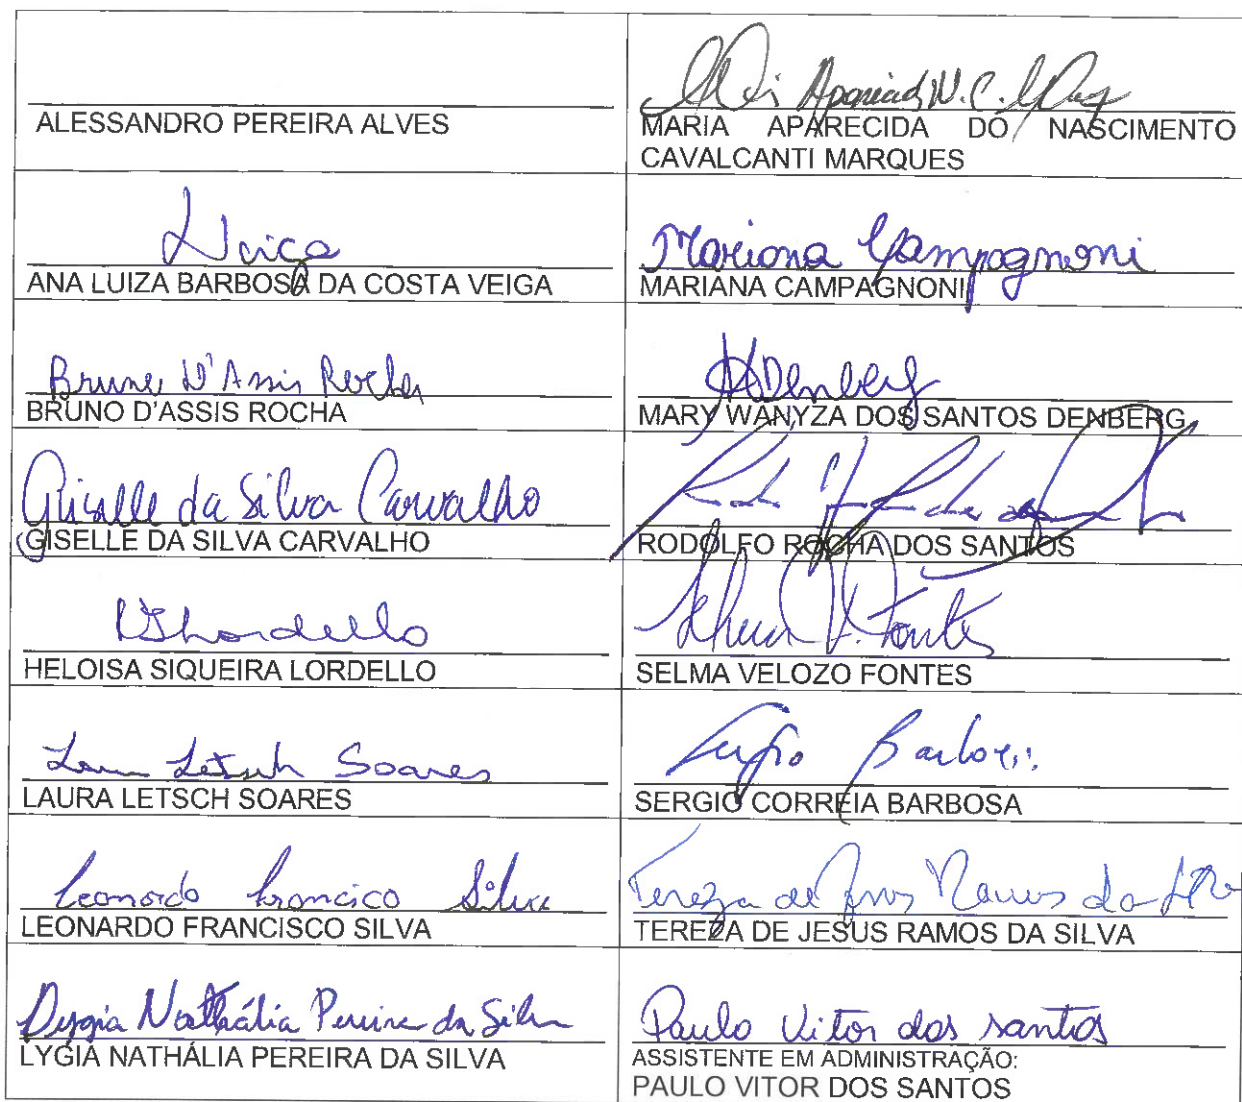 ALESSANDRO PEREIRA ALVES
Aparecid N. C.
MARIA APARECIDA DO NASCIMENTO
CAVALCANTI MARQUES
Veiga
ANA LUIZA BARBOSA DA COSTA VEIGA
Mariana Campagnoni
MARIANA CAMPAGNONI
Bruno D'Assis Rocha
BRUNO D'ASSIS ROCHA
Denberg
MARY WANYZA DOS SANTOS DENBERG
Giselle da Silva Carvalho
GISELLE DA SILVA CARVALHO
RODOLFO ROCHA DOS SANTOS
Lordello
HELOISA SIQUEIRA LORDELLO
Selma V. Fontes
SELMA VELOZO FONTES
Laura Letsch Soares
LAURA LETSCH SOARES
Sergio Barbosa
SERGIO CORREIA BARBOSA
Leonardo Francisco Silva
LEONARDO FRANCISCO SILVA
Tereza de Jesus Ramos da Silva
TEREZA DE JESUS RAMOS DA SILVA
Lygia Nathália Pereira da Silva
LYGIA NATHÁLIA PEREIRA DA SILVA
Paulo Vitor dos Santos
ASSISTENTE EM ADMINISTRAÇÃO:
PAULO VITOR DOS SANTOS